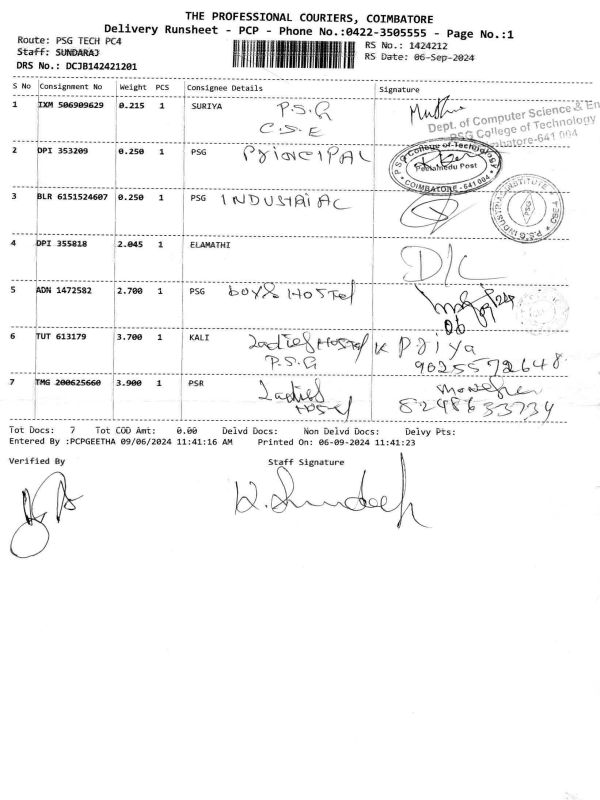 THE PROFESSIONAL COURIERS, COIMBATORE
Delivery Runsheet - PCP - Phone No.:0422-3505555 - Page No.:1
Route: PSG TECH PC4
RS No.: 1424212
Staff: SUNDARAJ
RS Date: 06-Sep-2024
DRS No.: DCJB142421201
S No Consignment No Weight PCS Consignee Details Signature
1 IXM 506909629 0.215 1 SURIYA P.S.G
C.S.E
Dept. of Computer Science & En
PSG College of Technology
mbatore-641 004
2 DPI 353209 0.250 1 PSG PrincIPAL
PSG College of Technology
Peelamedu Post
COIMBATORE - 641 004
3 BLR 6151524607 0.250 1 PSG INDUSTRIAL
P.S.G. INDUSTRIAL INSTITUTE
PSG
4 DPI 355818 2.045 1 ELAMATHI D/C
5 ADN 1472582 2.700 1 PSG boys HOSTel
6 TUT 613179 3.700 1 KALI Ladies HOSTel K Priya
P.S.G 9025572648
7 TMG 200625660 3.900 1 PSR Ladies
HOSTel 8248633734
Tot Docs: 7 Tot COD Amt: 0.00 Delvd Docs: Non Delvd Docs: Delvy Pts:
Entered By :PCPGEETHA 09/06/2024 11:41:16 AM Printed On: 06-09-2024 11:41:23
Verified By Staff Signature